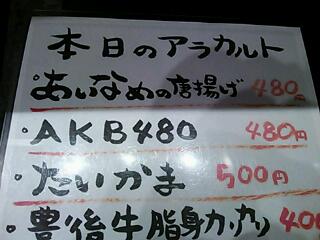 本日のアラカルト
・あいなめの唐揚げ 480円
・AKB480 480円
・たいかま 500円
・豊後牛脂身カリカリ 400